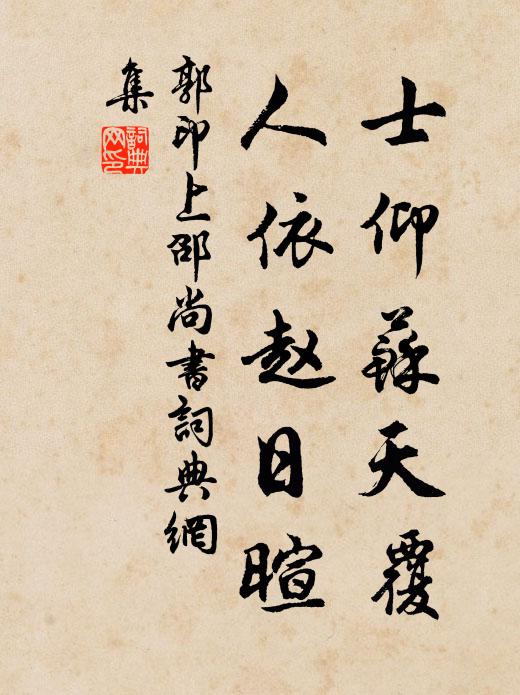 士仰蘇天覆
人依趙日暄
郭印上邵尚書詞典網
集
詞典網印